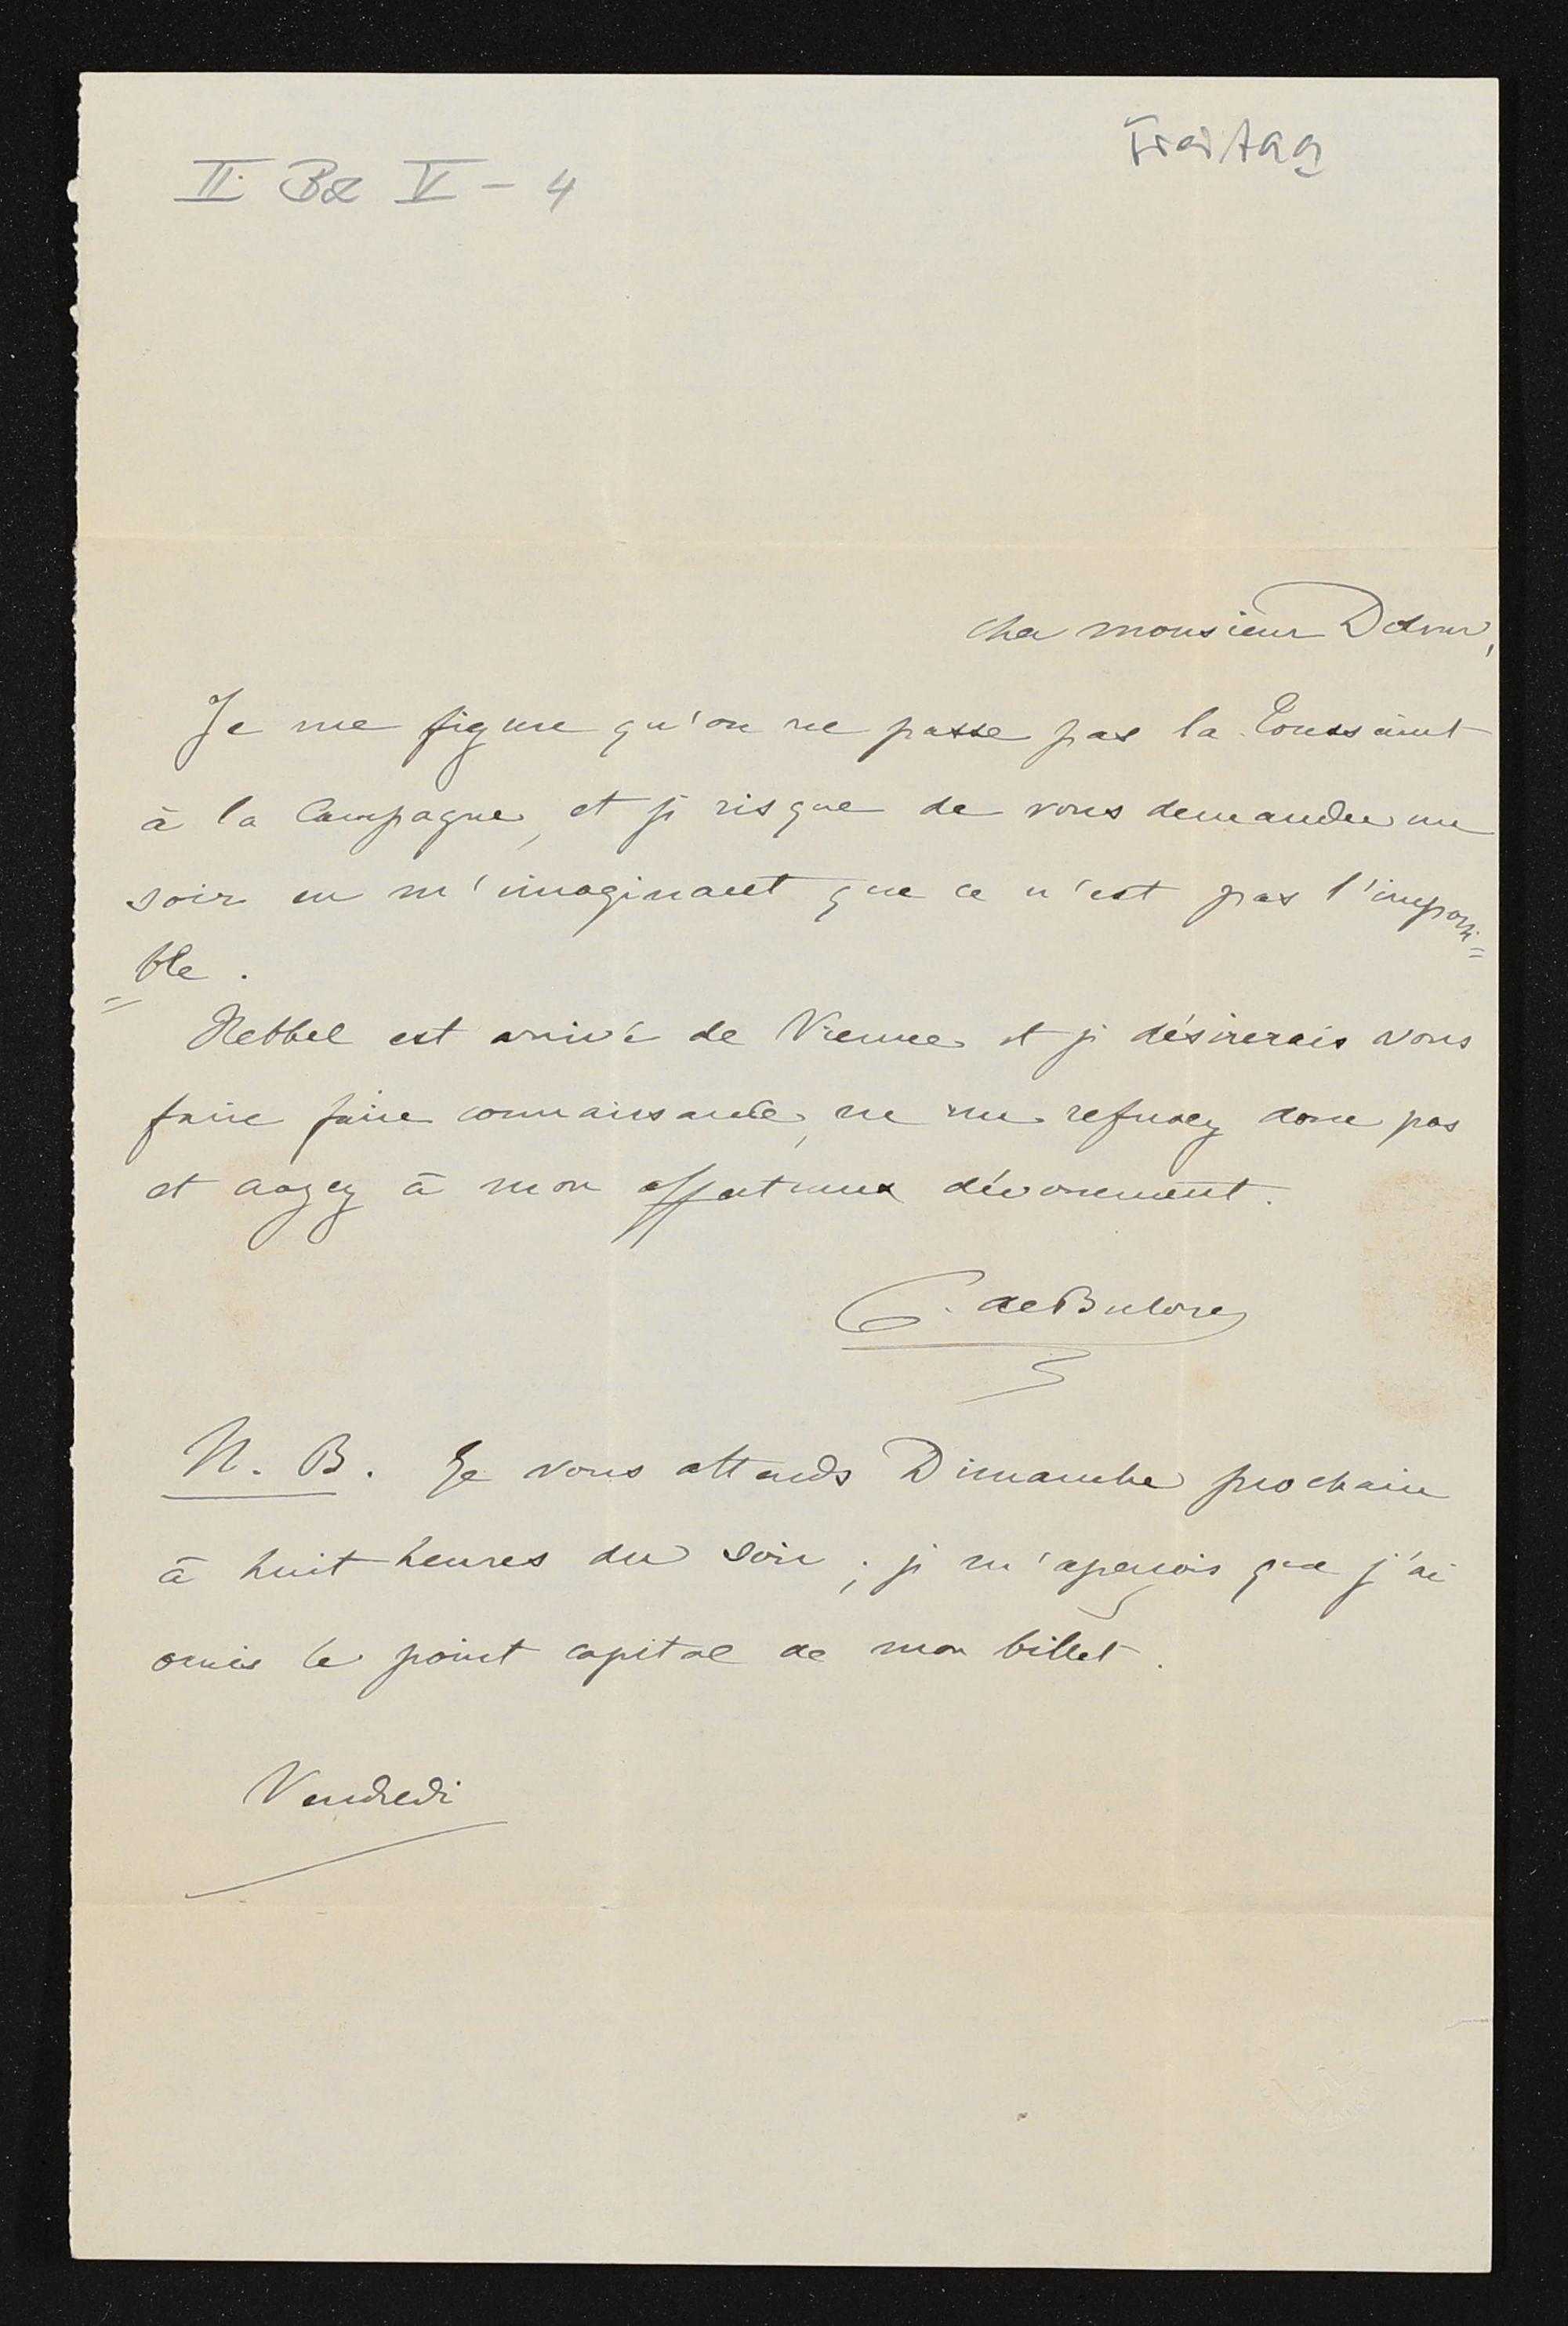 Freitag
II Bd V - 4
cher monsieur Dohm,
Je me figure qu'on ne passe pas la Toussaint
à la Campagne, et je risque de vous demander un
soir en m'imaginant que ce n'est pas l'impossi=
=ble.
Hebbel est arrivé de Vienne et je désirerais vous
faire faire connaissance, ne me refusez donc pas
et à mon affectueux dévouement.
C. de Bulow
N. B. Je vous attends Dimanche prochain
à huit heures du soir ; je m'aperçois que j'ai
omis le point capital de mon billet.
Vendredi